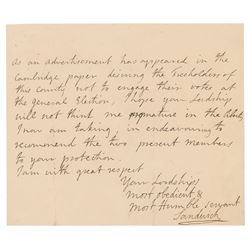 As an advertisement has appeared in the
Cambridge paper desiring the freeholders of
this county not to engage their votes at
the General Election, I hope your Lordship
will not think me premature in the liberty
I now am taking, in endeavouring to
recommend the two present members
to your protection.
I am with great respect
Your Lordships
most obedient &
most Humble servant
Sandwich